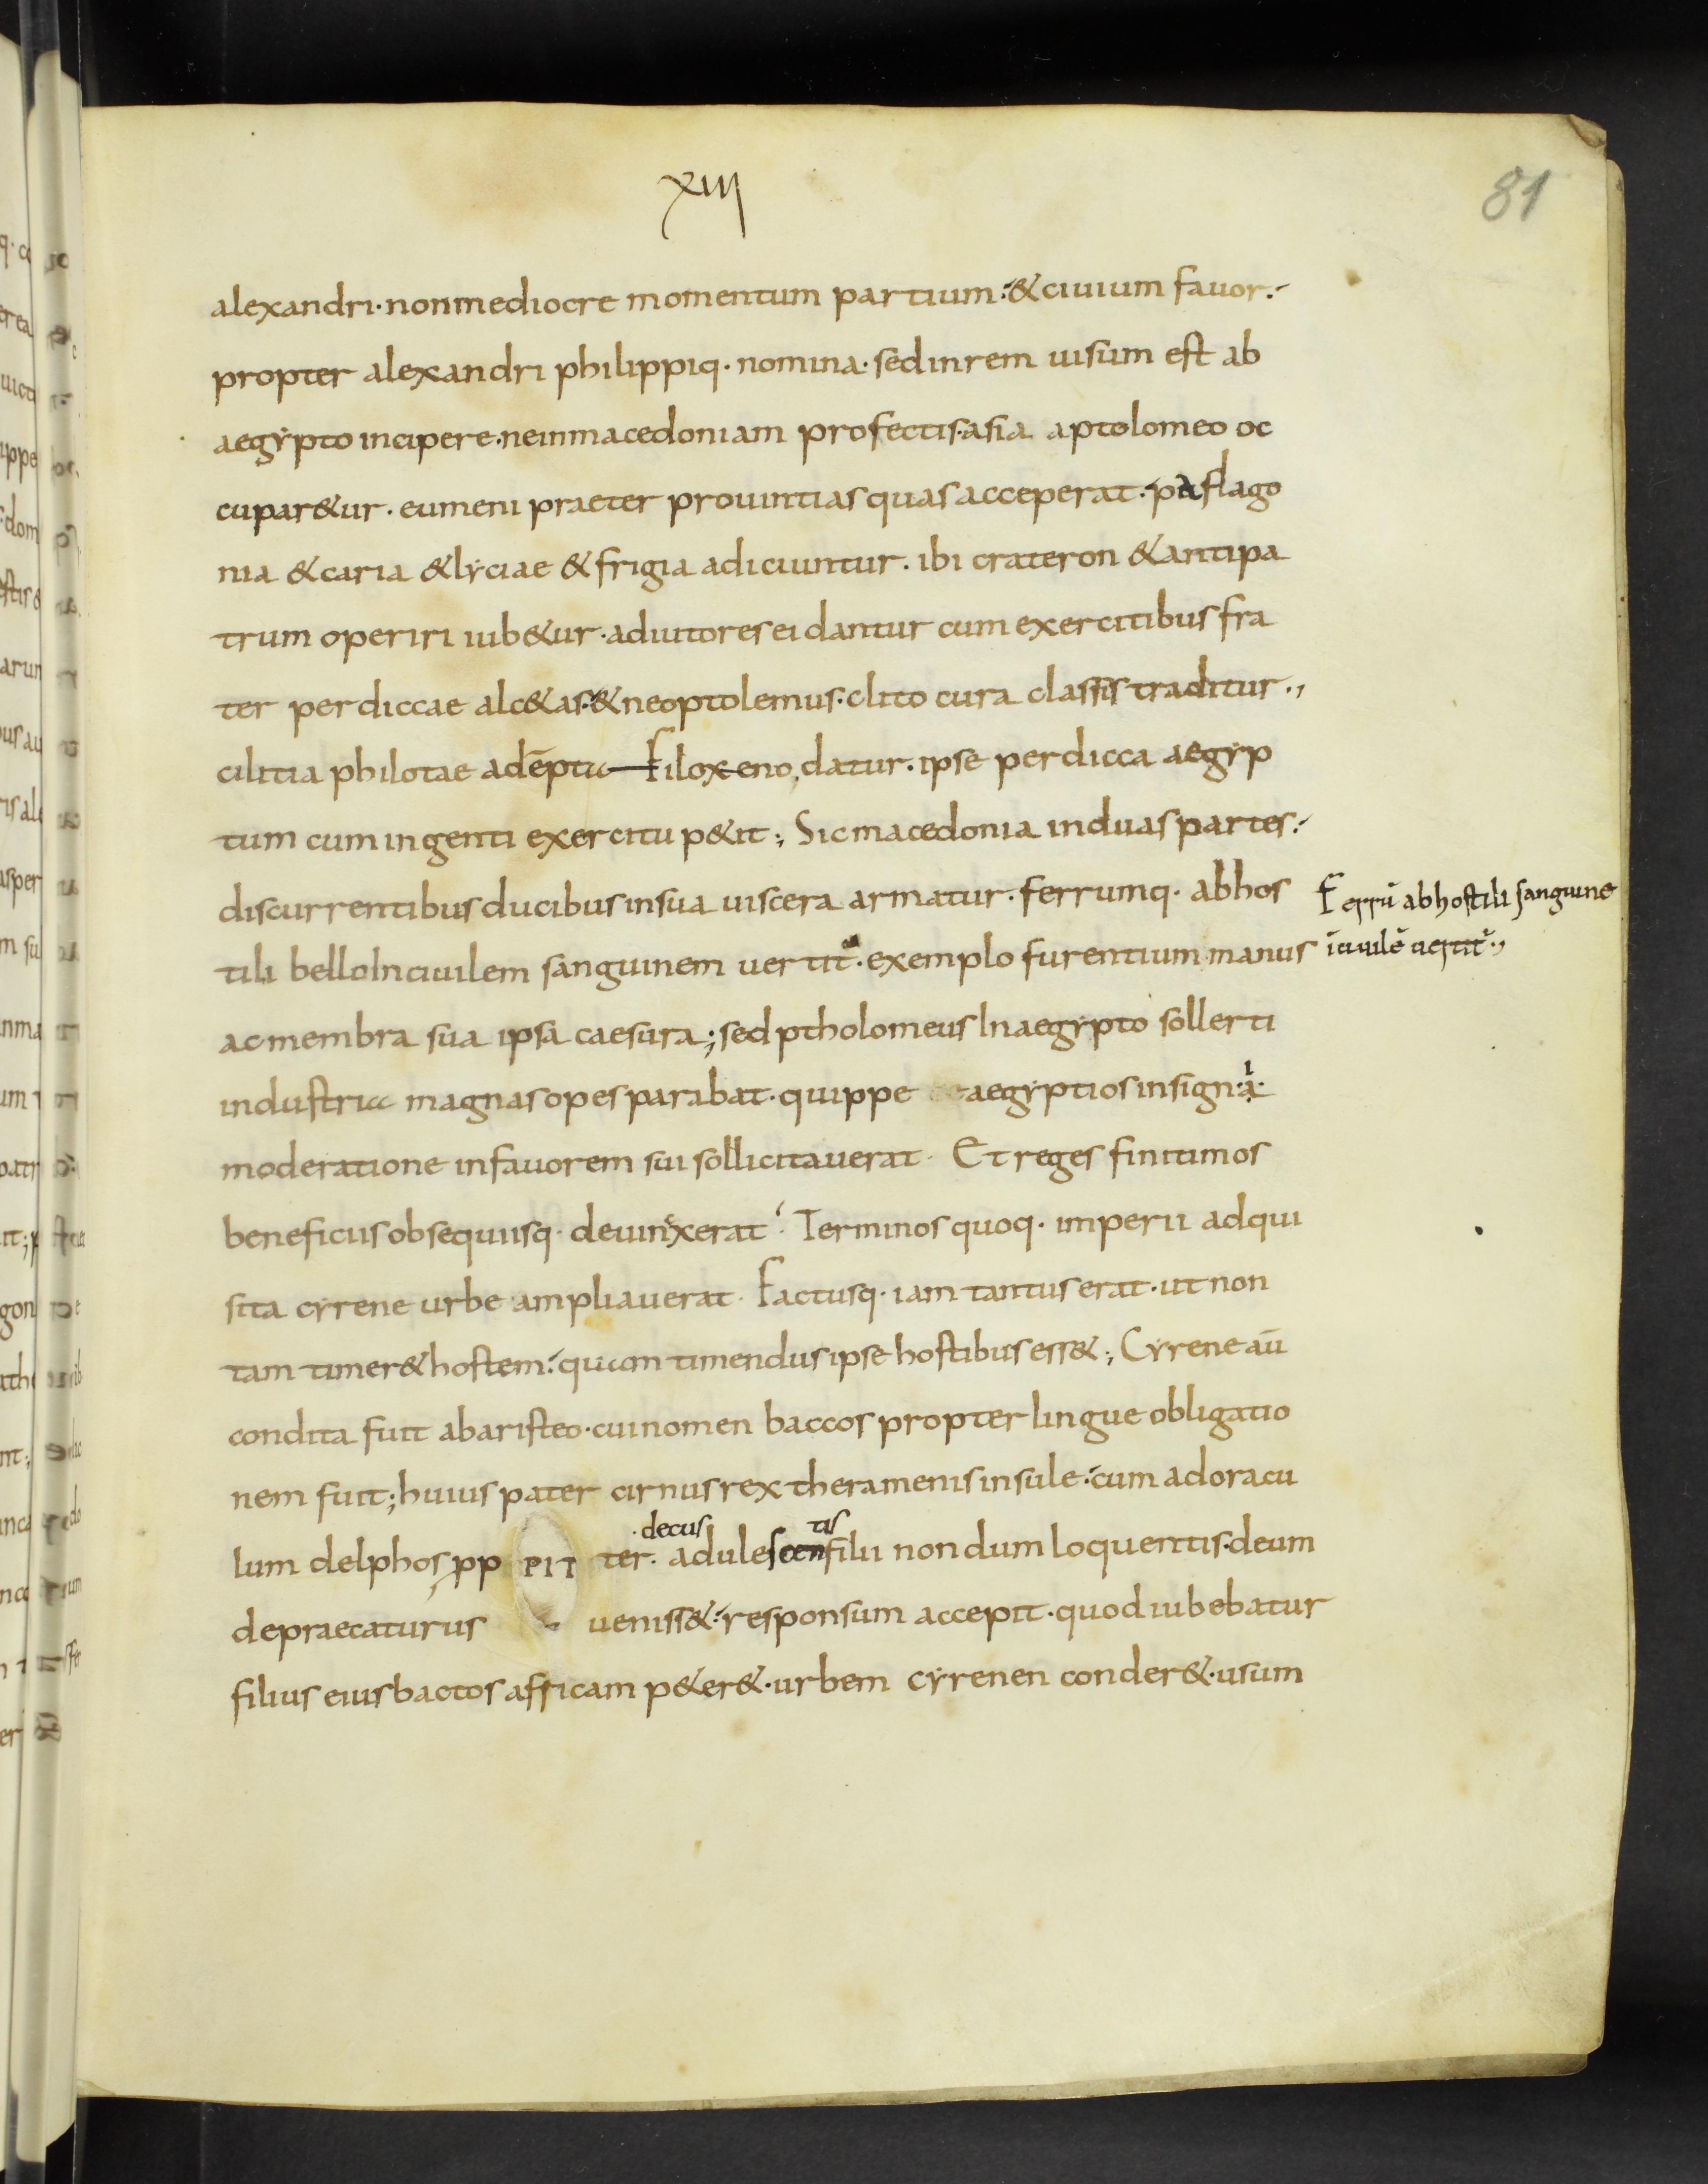 xiii
81
alexandri· non mediocre momentum partium:́ & ciuium fauor:́
propter alexandri philippiq· nomina· sed in rem uisum est ab
aegẏpto incipere· ne in macedoniam profectis· asia a ptolomeo oc
cupar&ur· eumeni praeter prouintias quas acceperat:́ paflago
nia & caria & lẏciae & frigia adiciuntur· ibi crateron & antipa
trum operiri iub&ur· adiutores ei dantur cum exercitibus fra
ter perdiccae alc&as:́ & neoptolemus· clito cura classis traditur·,
cilitia philotae adēpta Filoxeno, datur· ipse perdicca aegẏp
tum cum ingenti exercitu p&it; Sic macedonia in duas partes:́
discurrentibus ducibus in sua uiscera armatur· ferrumq· ab hos
Ferrū ab hostili sanguine
tili bello In ciuilem sanguinem uertit· exemplo furentium manus
ī ciuilē uertit·,
ac membra sua ipsa caesura; sed ptholomeus In aegẏpto sollerti
industria magnas opes parabat· quippe aegẏptios insigni·a·
moderatione in fauorem sui sollicitauerat· Et reges finitimos
beneficiis obsequiisq· deuinxerat· Terminos quoq· imperii adqui
sita cẏrene urbe ampliauerat· Factusq· iam tantus erat· ut non
tam timer& hostem:́ quam timendus ipse hostibus ess&; Cẏrene aū
condita fuit ab aristeo· cui nomen baccos propter lingue obligatio
nem fuit; huius pater cirnus rex theramenis insule:́ cum ad oracu
decus tis
lum delphos pp PIT ter· adulescen filii nondum loquentis· deum
depraecaturus ueniss&:́ responsum accepit· quod iubebatur
filius eius bactos affricam p&er&· urbem cẏrenen conder&· usum